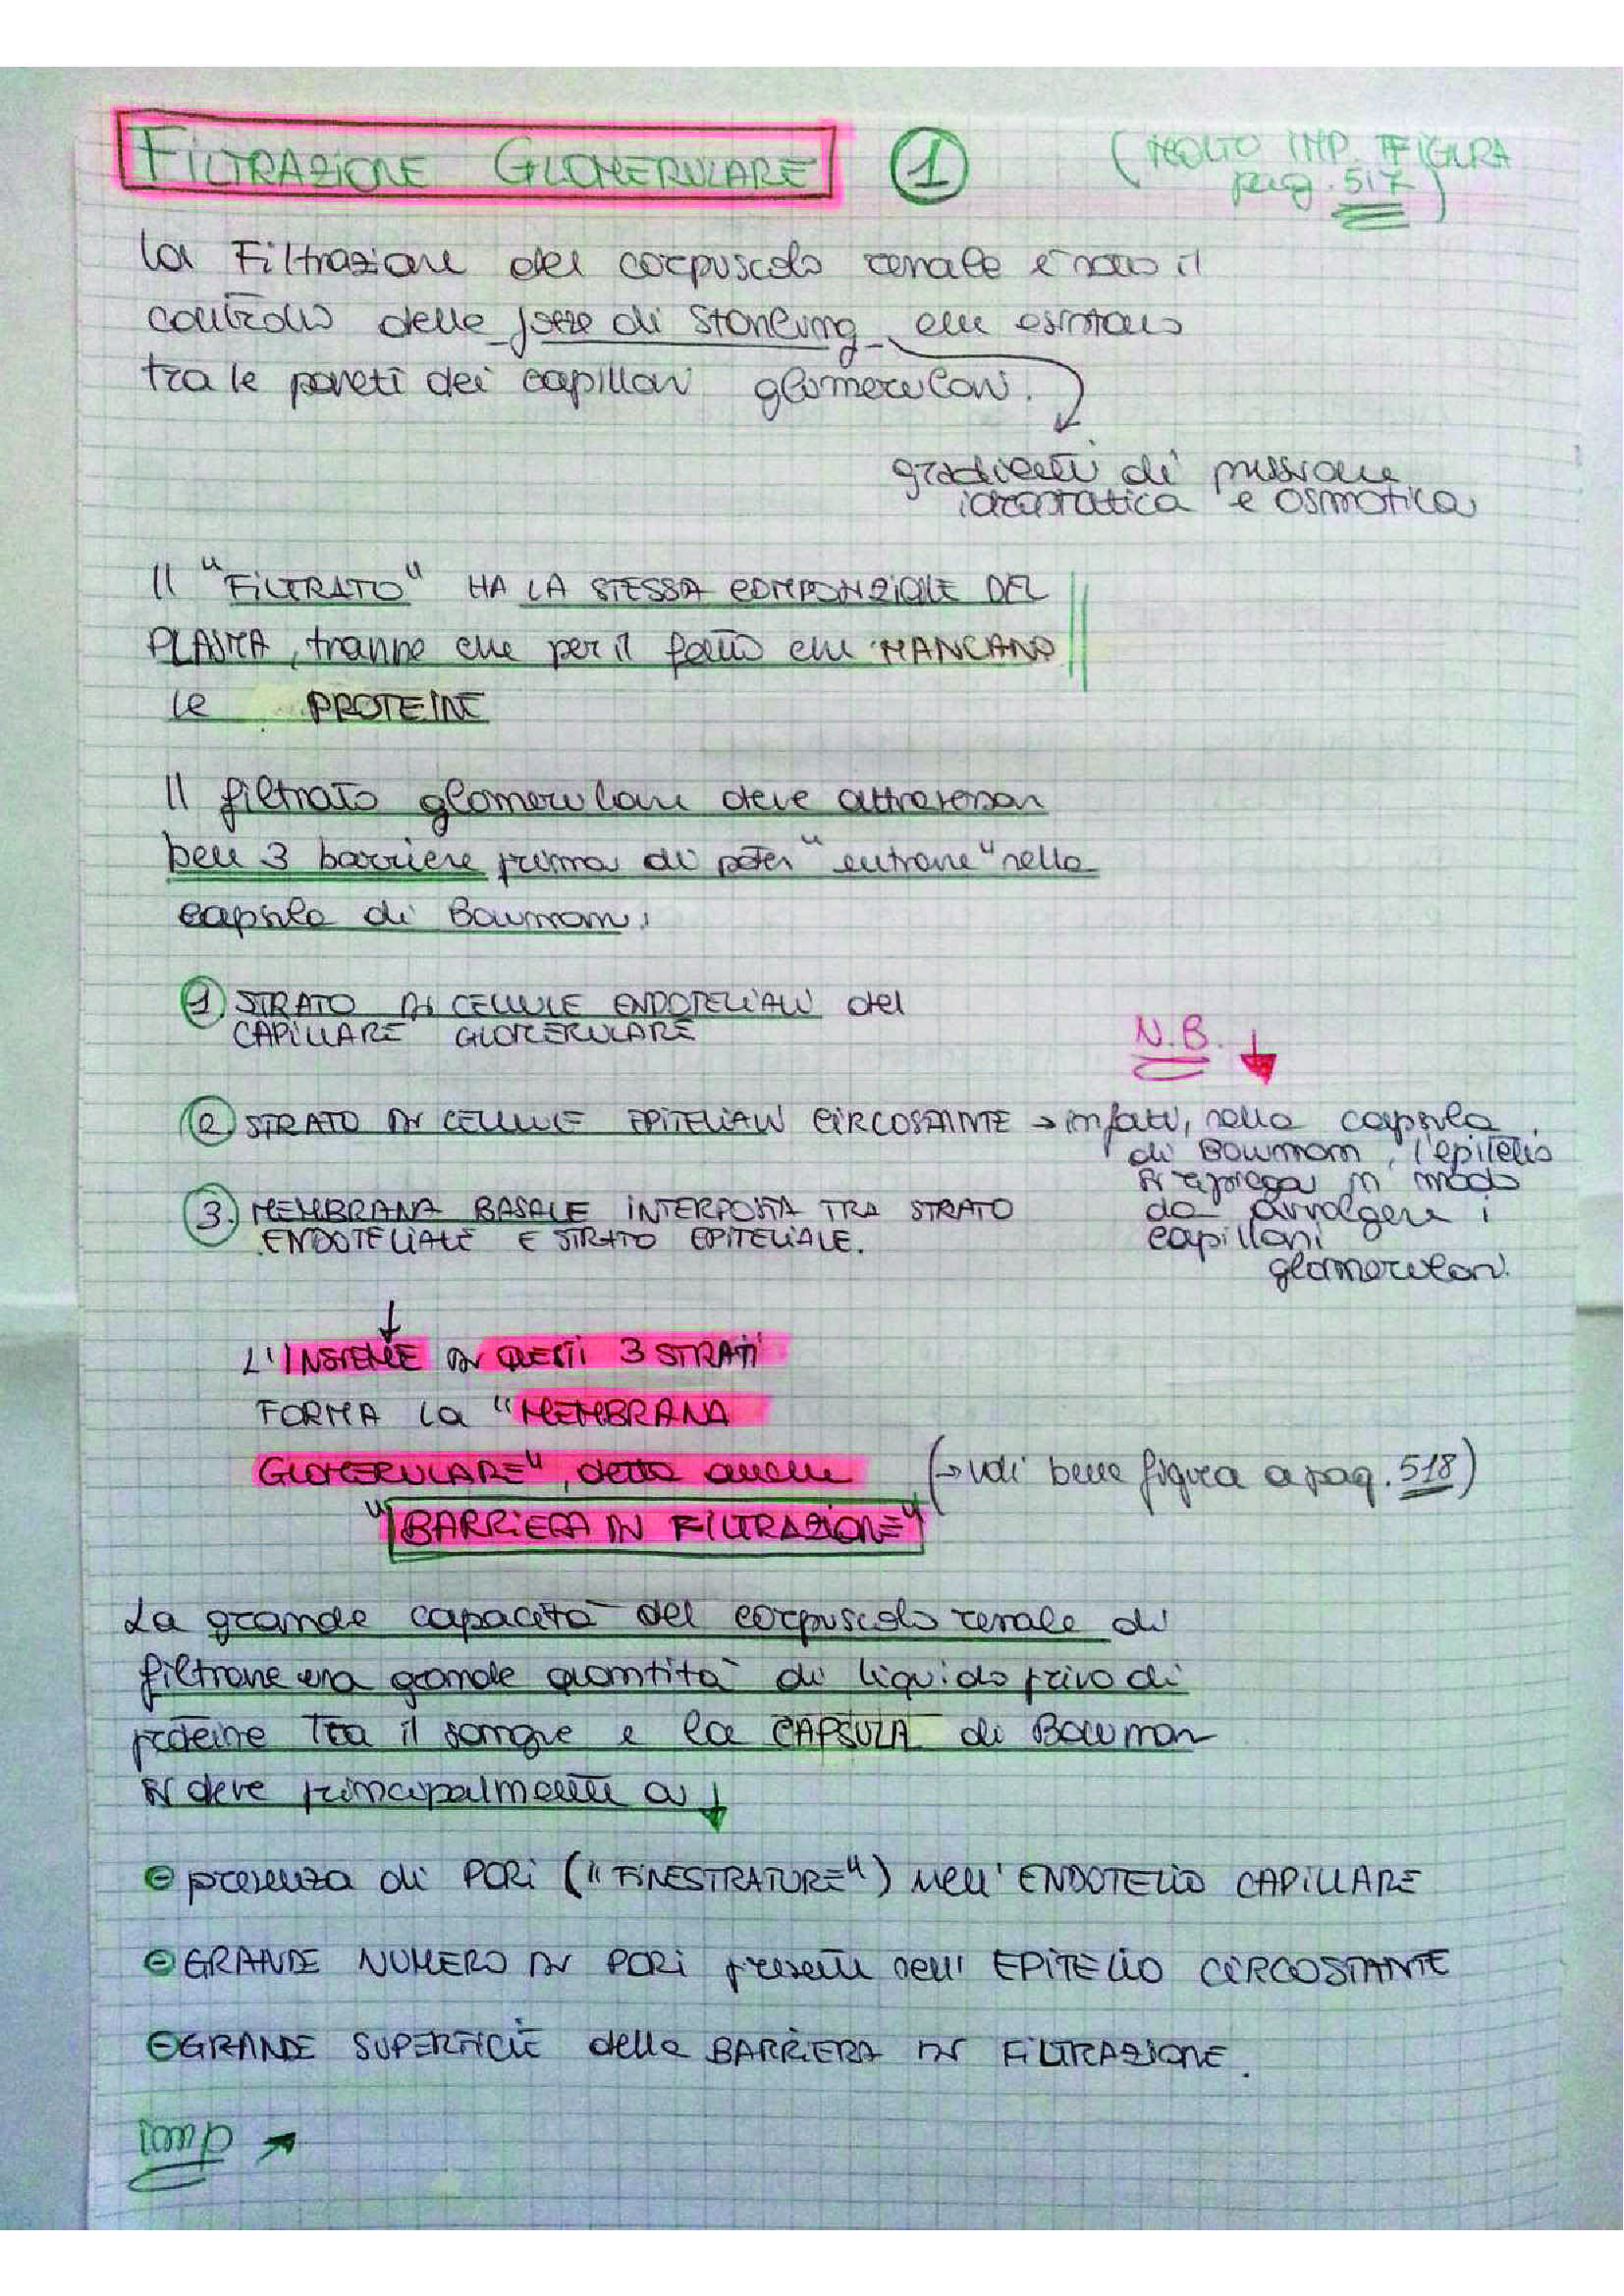 FILTRAZIONE GLOMERULARE 1 (MOLTO IMP. FIGURA
pag. 517)
La Filtrazione del corpuscolo renale è sotto il
controllo delle forze di Starling che esistono
tra le pareti dei capillari glomerulari.
gradienti di pressione
idrostatica e osmotica
Il "FILTRATO" HA LA STESSA COMPOSIZIONE DEL
PLASMA, tranne che per il fatto che MANCANO
le PROTEINE
Il filtrato glomerulare deve attraversare
ben 3 barriere prima di poter "entrare" nella
capsula di Bowman:
1 STRATO DI CELLULE ENDOTELIALI del
CAPILLARE GLOMERULARE
N.B. ↓
2 STRATO DI CELLULE EPITELIALI CIRCOSTANTE → infatti, nella capsula
di Bowman, l'epitelio
si ripiega in modo
3. MEMBRANA BASALE INTERPOSTA TRA STRATO da avvolgere i
ENDOTELIALE E STRATO EPITELIALE. capillari
glomerulari.
↓
L'INSIEME DI QUESTI 3 STRATI
FORMA La "MEMBRANA
GLOMERULARE", detta anche (→ vedi bene figura a pag. 518)
"BARRIERA DI FILTRAZIONE"
La grande capacità del corpuscolo renale di
filtrare una grande quantità di liquido privo di
proteine tra il sangue e la CAPSULA di Bowman
si deve principalmente a ↓
- presenza di PORI ("FINESTRATURE") nell'ENDOTELIO CAPILLARE
- GRANDE NUMERO DI PORI presenti nell'EPITELIO CIRCOSTANTE
- GRANDE SUPERFICIE della BARRIERA DI FILTRAZIONE.
imp →